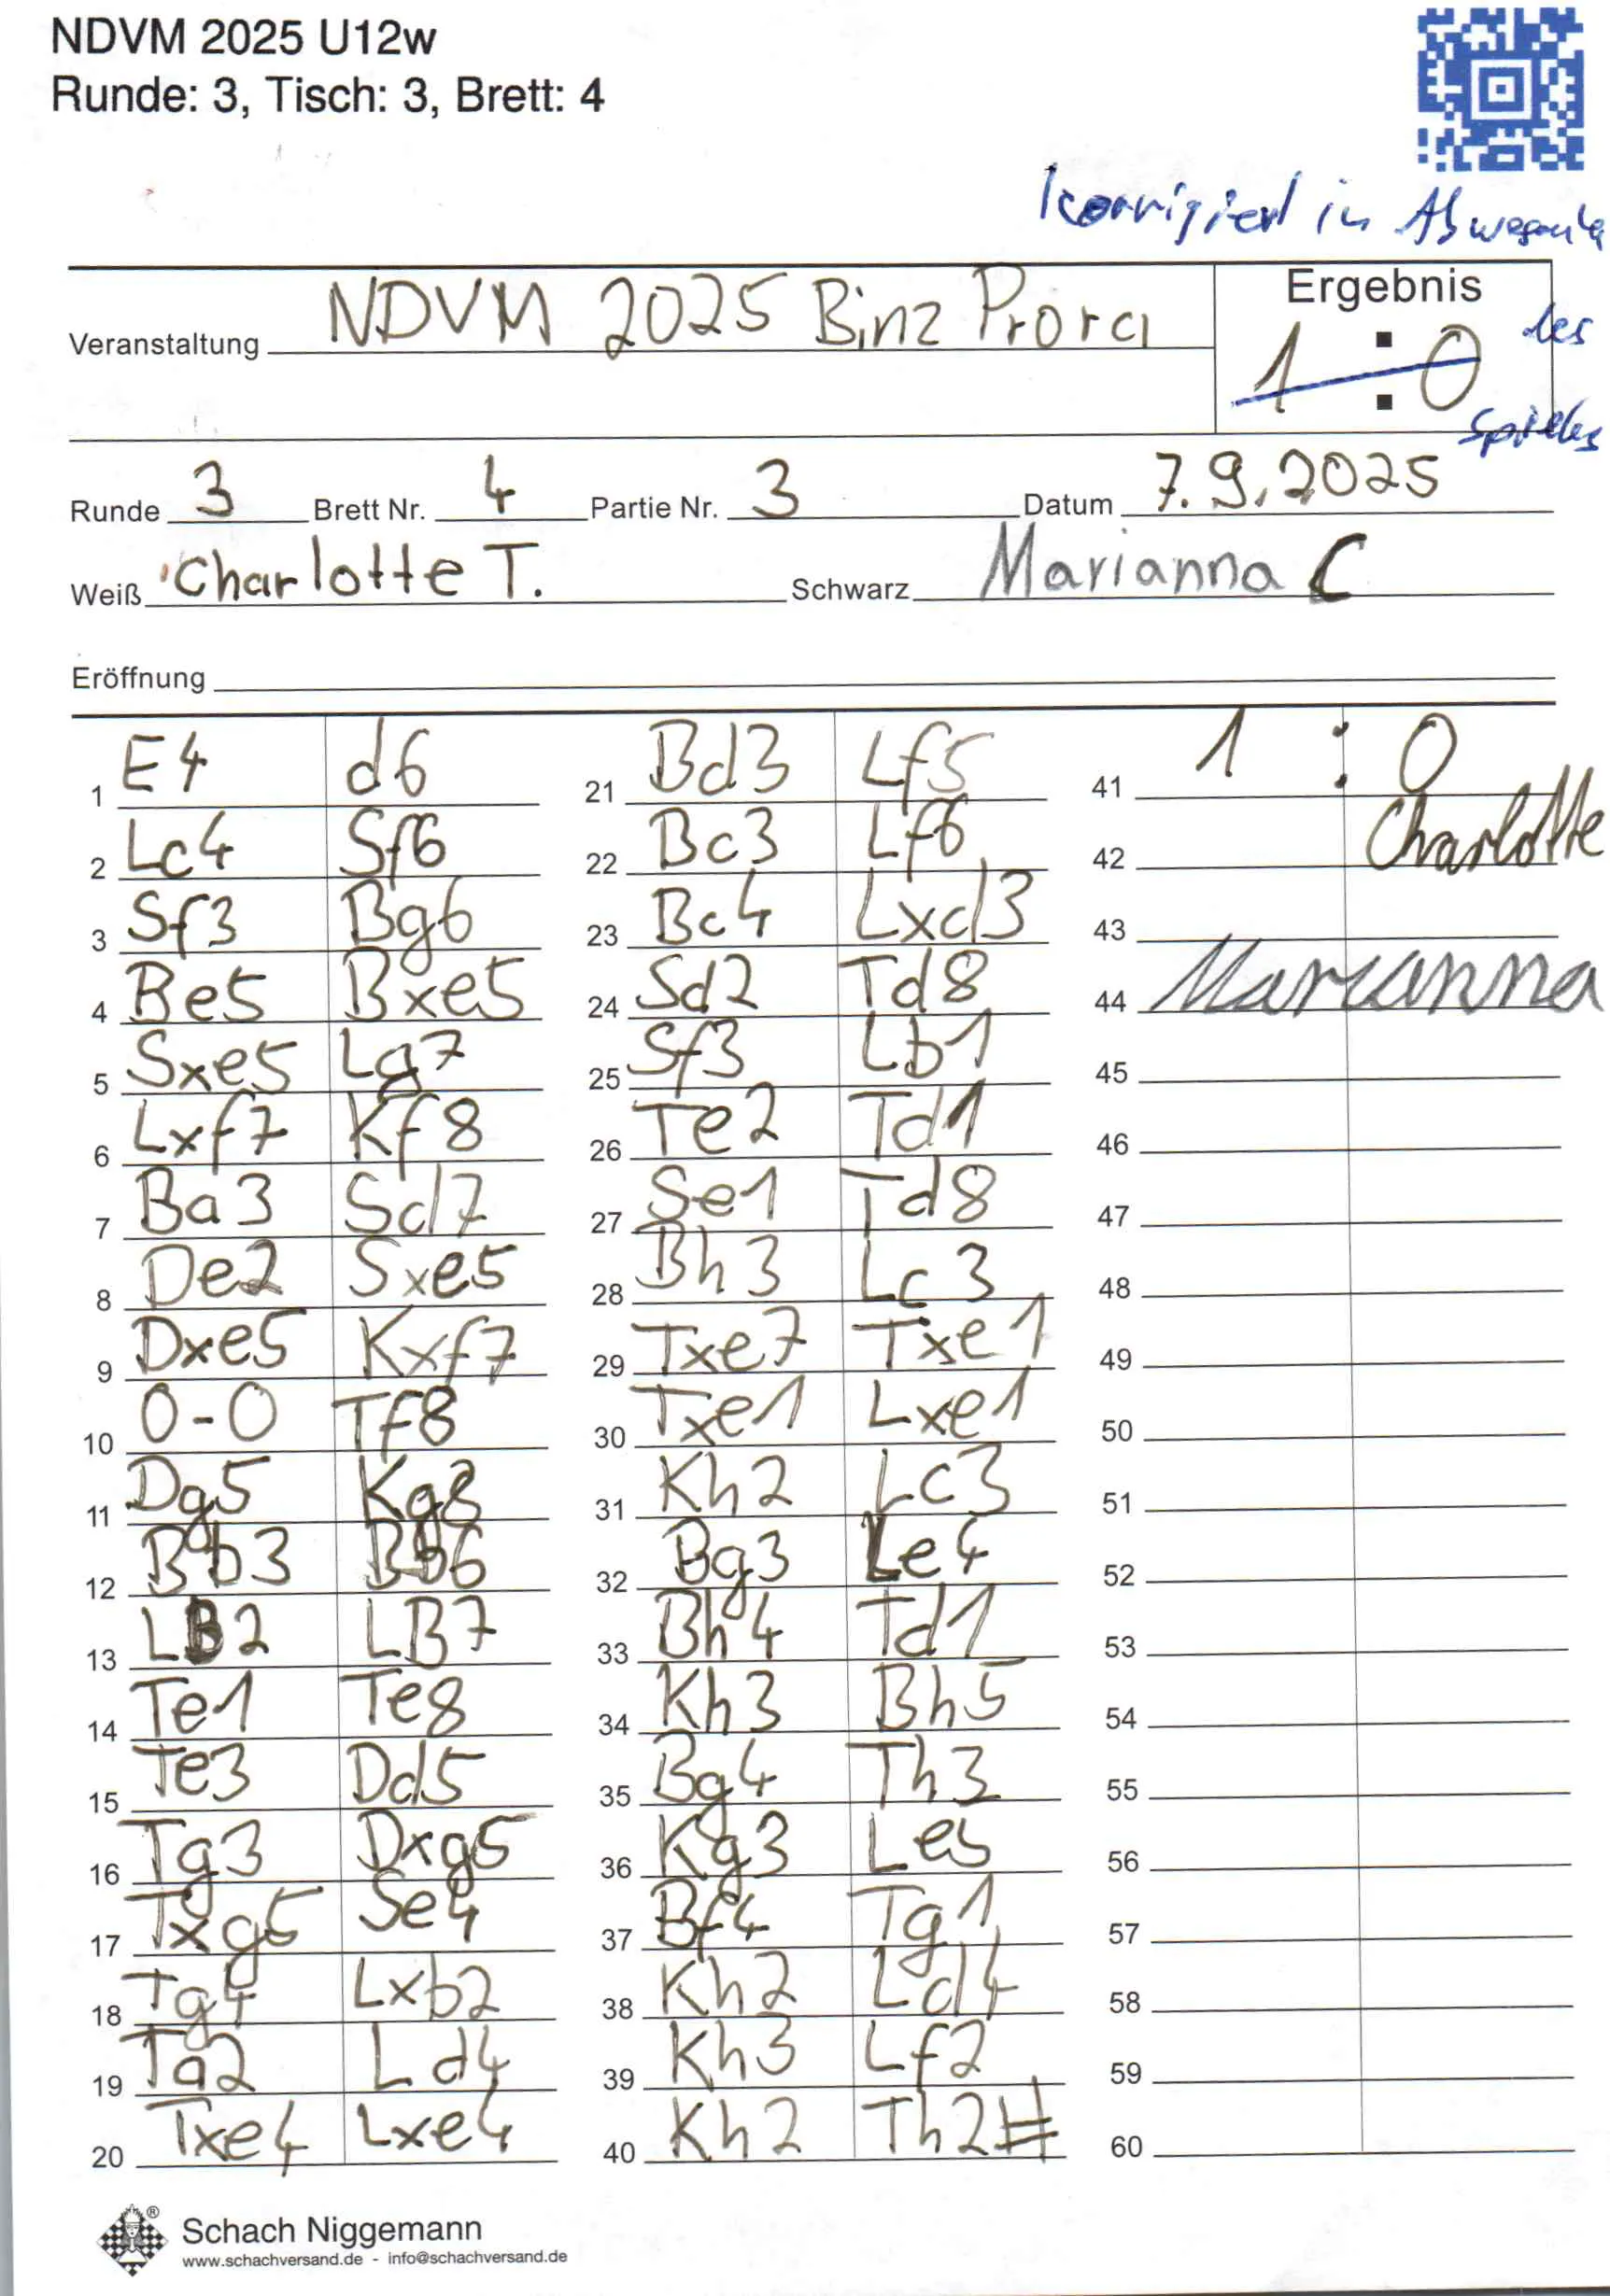 NDVM 2025 U12w
Runde: 3, Tisch: 3, Brett: 4
korrigiert in
Veranstaltung NDVM 2025 Binz Prora
Ergebnis
1 : 0
des
Spieles
Runde 3 Brett Nr. 4 Partie Nr. 3 Datum 7.9.2025
Weiß Charlotte T. Schwarz Marianna C
Eröffnung
1 E4 d6
2 Lc4 Sf6
3 Sf3 Bg6
4 Be5 Bxe5
5 Sxe5 Lg7
6 Lxf7 Kf8
7 Ba3 Sd7
8 De2 Sxe5
9 Dxe5 Kxf7
10 0-0 Tf8
11 Dg5 Kg8
12 Bb3 Bb6
13 LB2 LB7
14 Te1 Te8
15 Te3 Dd5
16 Tg3 Dxg5
17 Txg5 Se4
18 Tg4 Lxb2
19 Ta2 Ld4
20 Txe4 Lxe4
21 Bd3 Lf5
22 Bc3 Lf6
23 Bc4 Lxd3
24 Sd2 Td8
25 Sf3 Lb1
26 Te2 Td1
27 Se1 Td8
28 Bh3 Lc3
29 Txe7 Txe1
30 Txe1 Lxe1
31 Kh2 Lc3
32 Bg3 Le4
33 Bh4 Td1
34 Kh3 Bh5
35 Bg4 Th3
36 Kg3 Le5
37 Bf4 Tg1
38 Kh2 Ld4
39 Kh3 Lf2
40 Kh2 Th2#
41 1 : 0
42 Charlotte
43
44 Marianna
45
46
47
48
49
50
51
52
53
54
55
56
57
58
59
60
Schach Niggemann
www.schachversand.de - info@schachversand.de